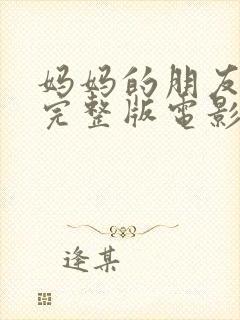 妈妈的朋友
完整版电影
逢某